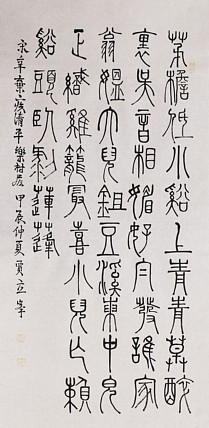 茅檐低小谿上青青草醉
裏吳音相媚好白發誰家
翁媼大兒鉏豆溪東中兒
正織雞籠最喜小兒亡賴
谿頭臥剝蓮蓬
宋辛棄疾清平樂村居 甲辰仲夏賈立